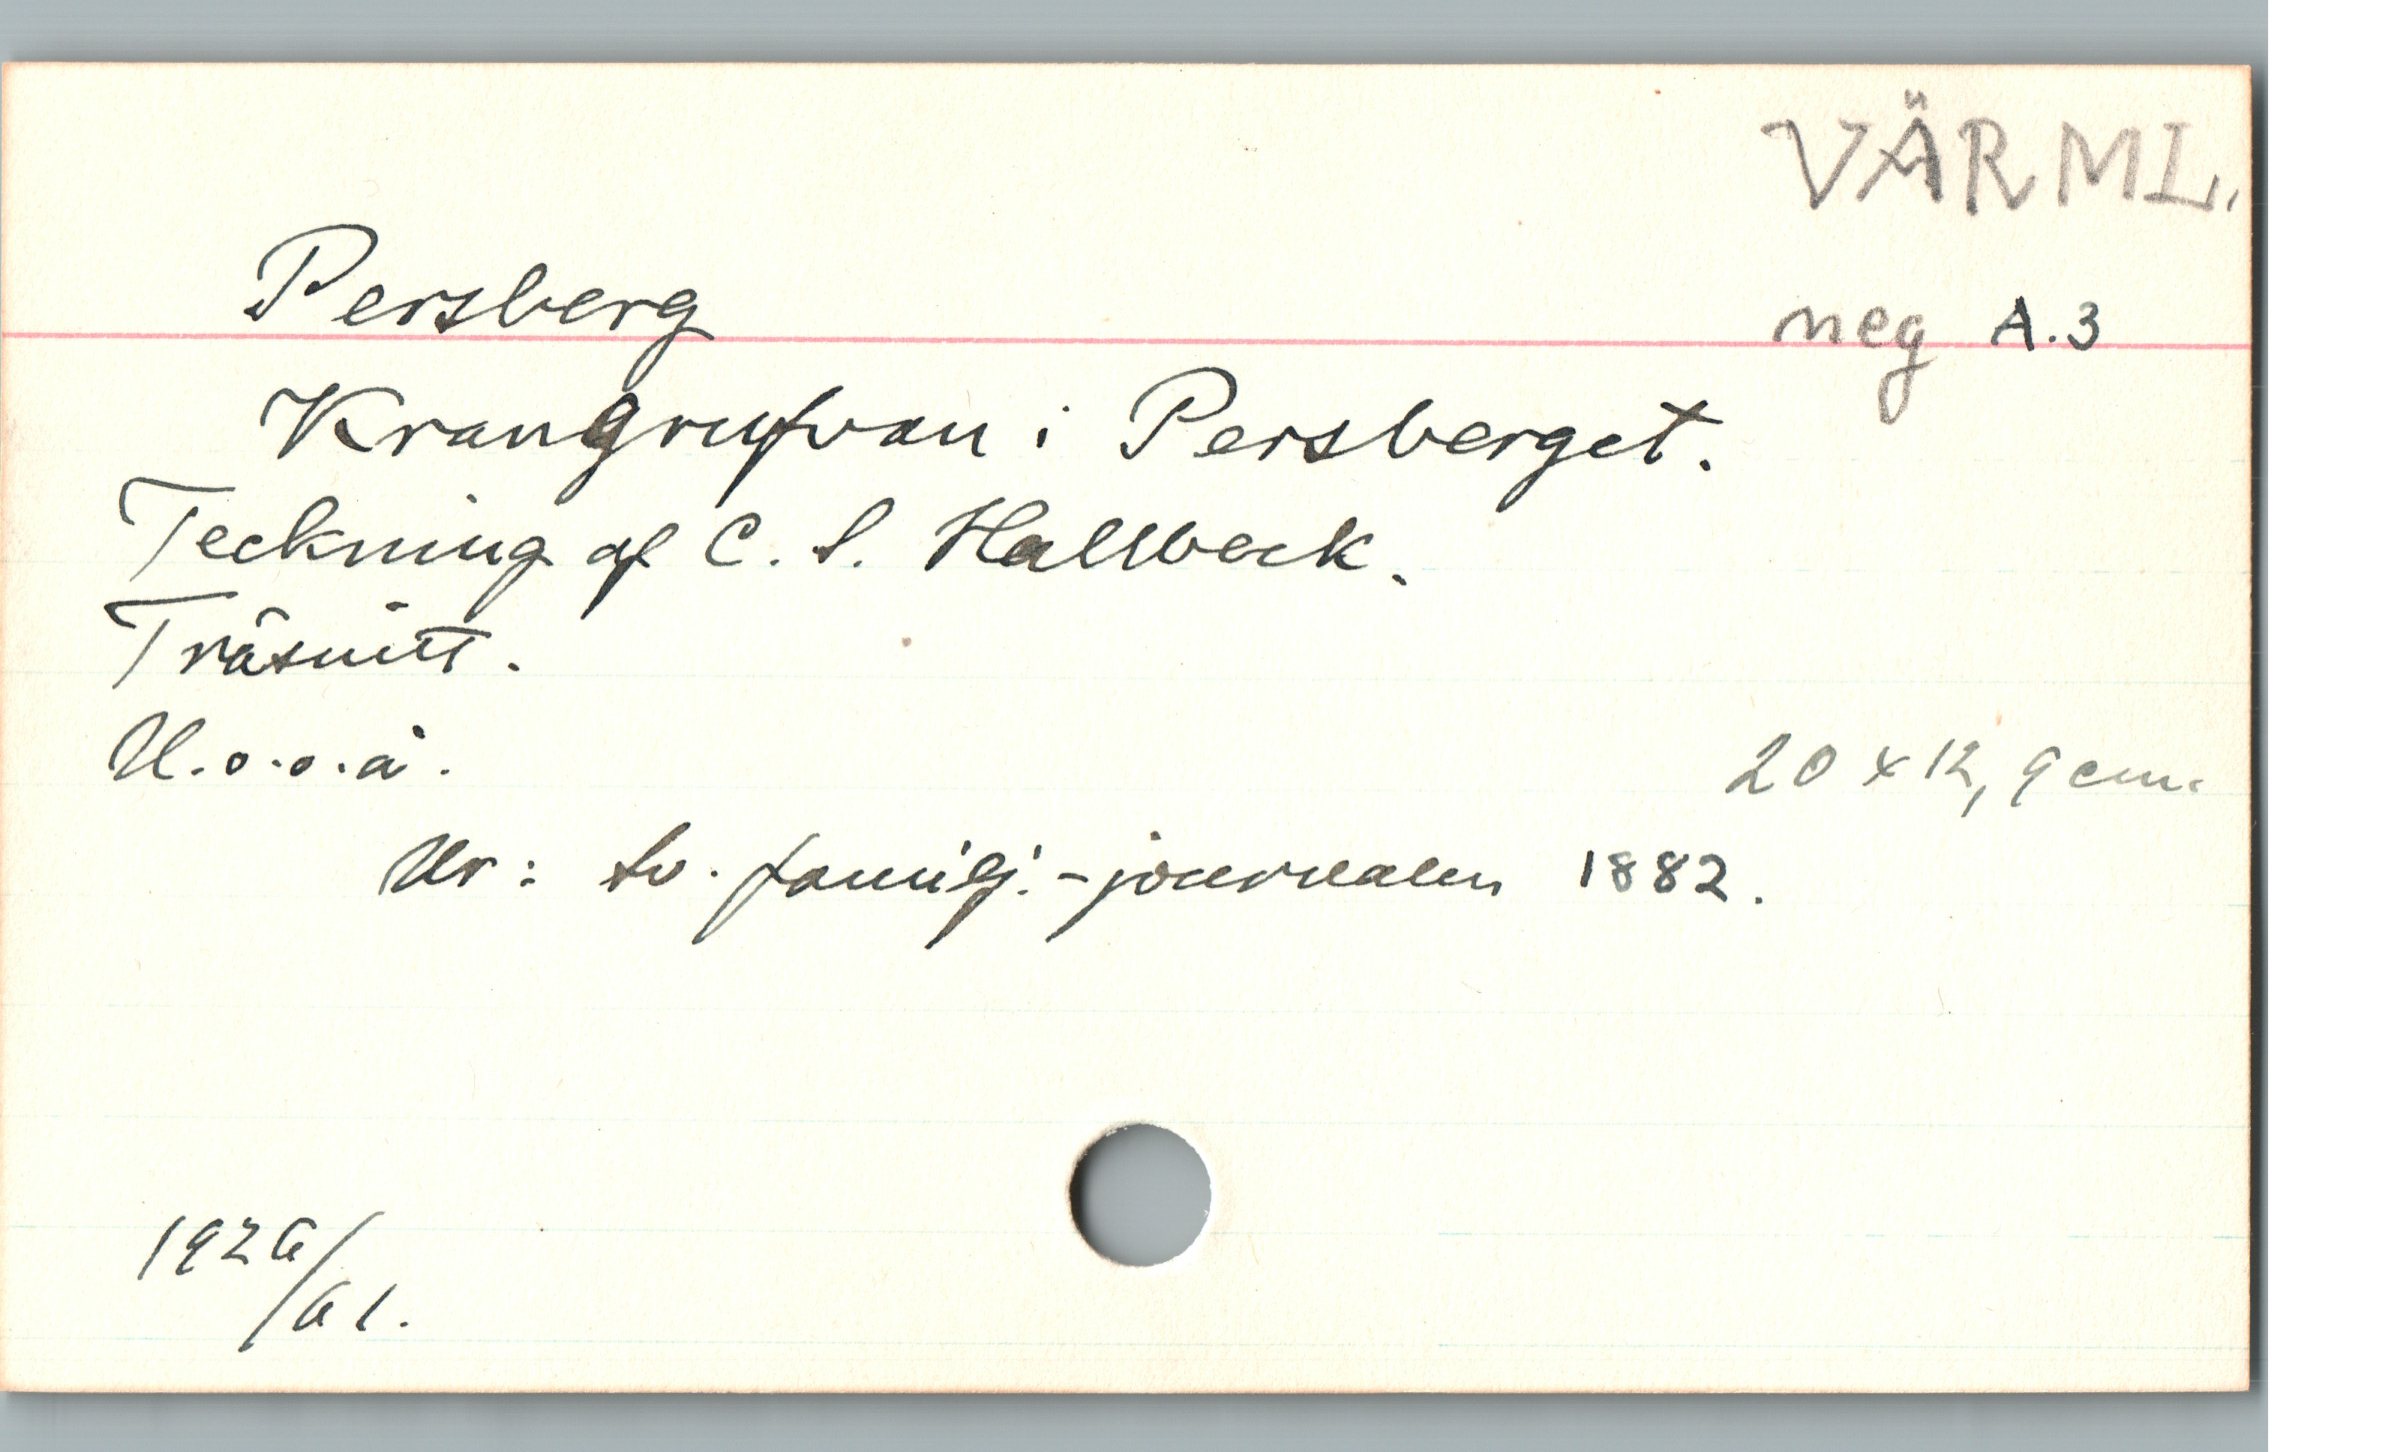 VÄRML.
Persberg
neg A.3
Krangrufvan i Persberget.
Teckning af C. S. Hallbeck.
Träsnitt.
U.o.o.å.
20 x 12,9 cm.
Ur: Sv. familj.-journalen 1882.
1926/61.